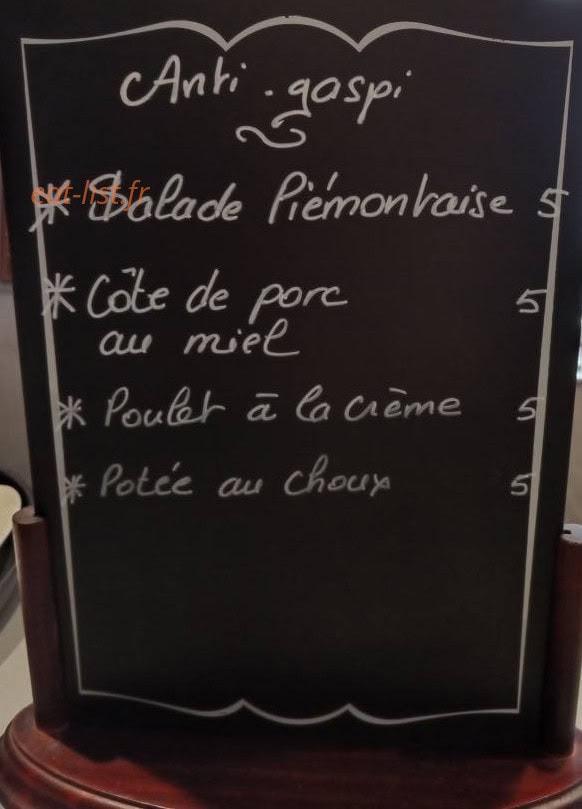 Anti-gaspi
eat-list.fr
* Salade Piémontaise 5
* Côte de porc 5
au miel
* Poulet à la crème 5
* Potée au choux 5